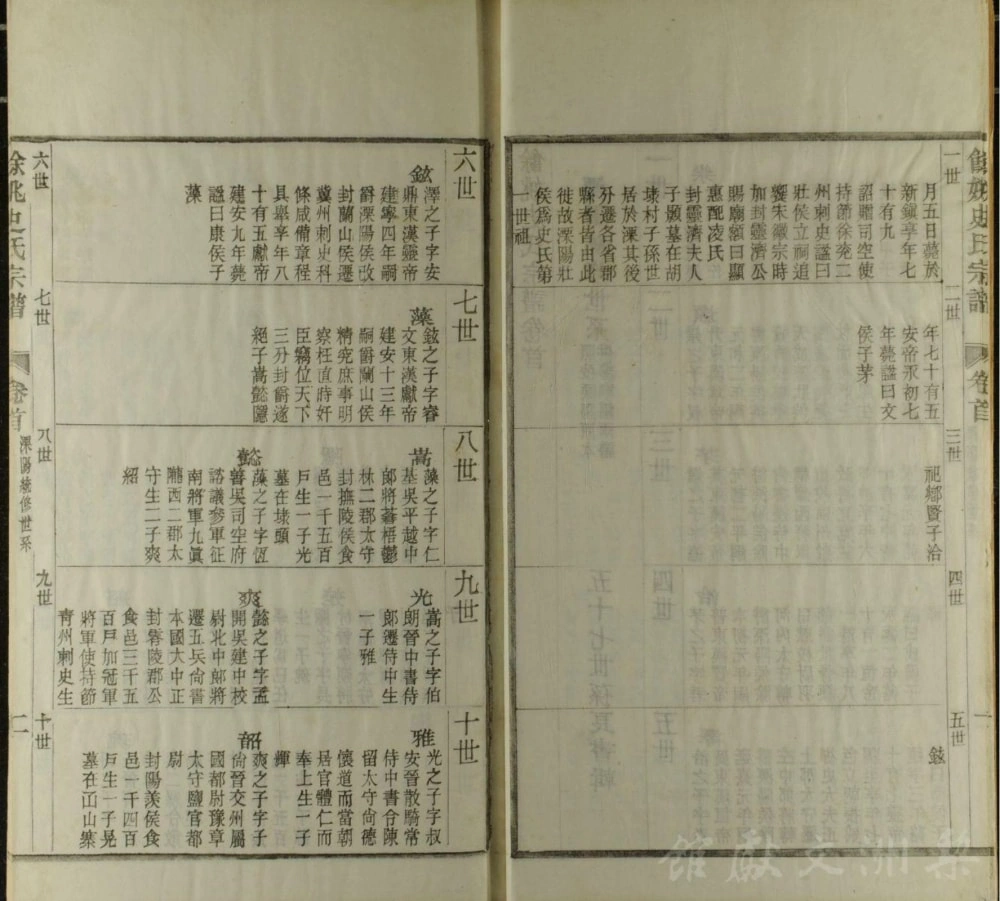 餘姚史氏宗譜
卷首
一
一世
月五日薨於
新鎮享年七
十有九
詔贈司空使
持節徐兗二
州刺史諡曰
壯侯立祠追
饗宋徽宗時
加封靈濟公
賜廟額曰顯
惠配凌氏
封靈濟夫人
子顥墓在胡
埭村子孫世
居於溧其後
分遷各省郡
縣者皆由此
徙故溧陽壯
侯爲史氏第
一世祖
二世
年七十有五
安帝永初七
年薨諡曰文
侯子茅
三世
祀鄉賢子治
四世
五世
鉉
六世
鉉
澤之子字安
鼎東漢靈帝
建寧四年嗣
爵溧陽侯改
封蘭山侯遷
冀州刺史科
條咸備章程
具舉享年八
十有五獻帝
建安九年薨
諡曰康侯子
藻
七世
藻
鉉之子字睿
文東漢獻帝
建安十三年
嗣爵蘭山侯
精究庶事明
察枉直時奸
臣竊位天下
三分封爵遂
絕子嵩懿隱
八世
嵩
藻之子字仁
基吳平越中
郎將蒼梧鬱
林二郡太守
封撫陵侯食
邑一千五百
戶生一子光
墓在埭頭
懿
藻之子字恆
善吳司空府
諮議參軍征
南將軍九眞
隴西二郡太
守生二子爽
紹
九世
光
嵩之子字伯
朗晉中書侍
郎遷侍中生
一子雅
爽
懿之子字孟
開吳建中校
尉北中郎將
遷五兵尙書
本國大中正
封零陵郡公
食邑三千五
百戶加冠軍
將軍使持節
青州刺史生
十世
雅
光之子字叔
安晉散騎常
侍中書令陳
留太守尙德
懷道而當朝
居官體仁而
奉上生一子
輝
韶
爽之子字子
尙晉交州屬
國都尉豫章
太守鹽官都
尉
封陽羨侯食
邑一千四百
戶生一子晃
墓在而山寨
餘姚史氏宗譜
卷首
溧陽統修世系
二
六世
七世
八世
九世
十世
梨洲文獻館